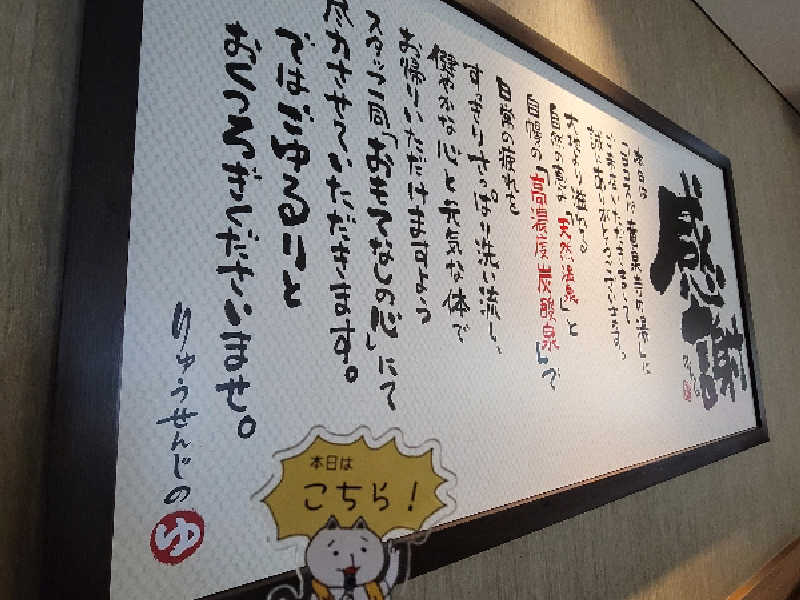 感謝
本日は
「ココカラ竜泉寺の湯」に
ございいただきまして
誠にありがとうございます。
大地より溢れる
自然の恵み「天然温泉」と
自慢の「高濃度炭酸泉」で
日常の疲れを
すっきりさっぱり洗い流し、
健やかな心と元気な体で
お帰りいただけますよう
スタッフ一同「おもてなしの心」にて
尽力させていただきます。
ではごゆるりと
おくつろぎくださいませ。
りゅうせんじの
ゆ
本日は
こちら!